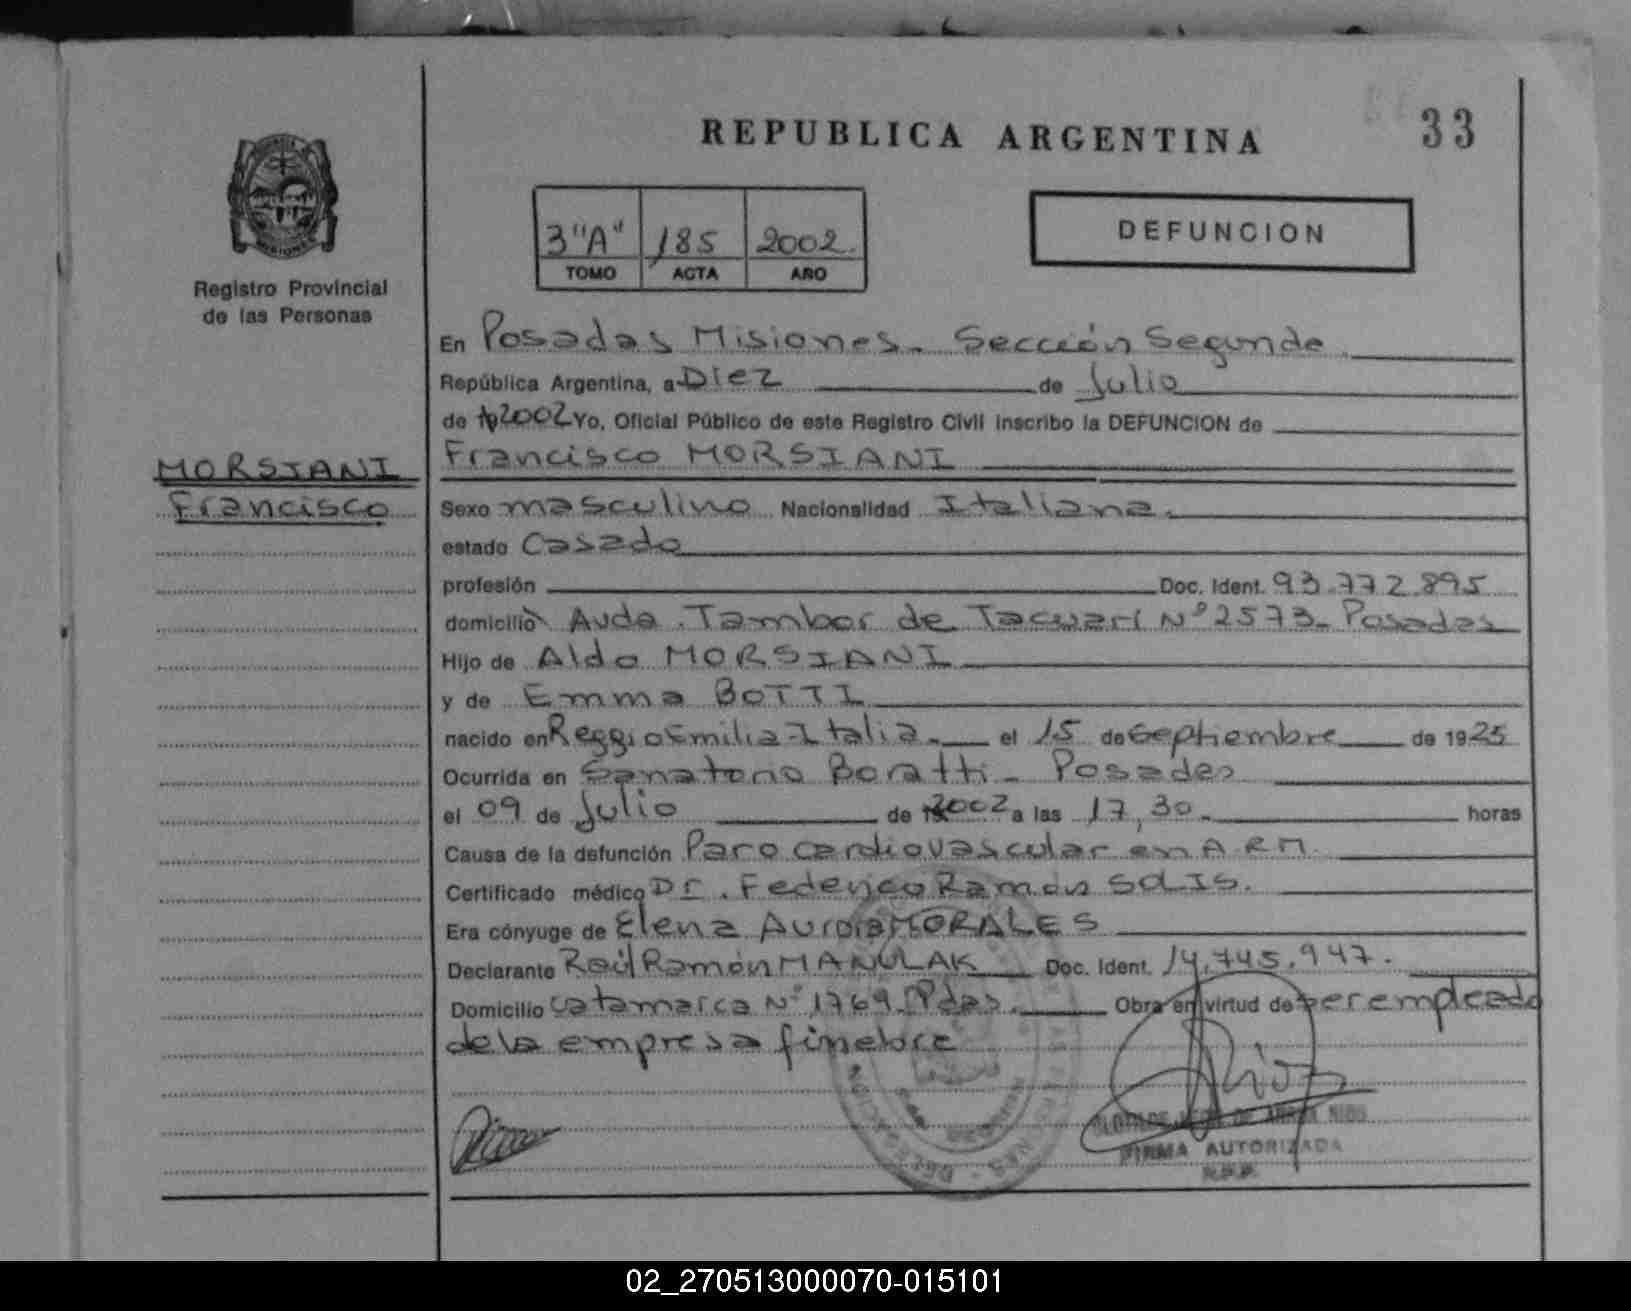 REPUBLICA ARGENTINA
33
3"A" 185 2002.
TOMO ACTA AÑO
DEFUNCION
Registro Provincial
de las Personas
MORSIANI
Francisco
En Posadas Misiones. Sección Segunda
República Argentina, a Diez de Julio
de 2002 Yo, Oficial Público de este Registro Civil inscribo la DEFUNCION de
Francisco MORSIANI
Sexo masculino Nacionalidad Italiana.
estado Casado
profesión Doc. Ident. 93.772.895
domicilio Avda. Tambor de Tacuarí Nº 2573_ Posadas
Hijo de Aldo MORSIANI
y de Emma BOTTI
nacido en Reggio Emilia-Italia. el 15 de Septiembre de 1925
Ocurrida en Sanatorio Boratti_ Posadas
el 09 de Julio de 2002 a las 17,30. horas
Causa de la defunción Paro cardiovascular en A R M.
Certificado médico Dr. Federico Ramón SOLIS.
Era cónyuge de Elena Aurora MORALES
Declarante Raúl Ramón MANULAK Doc. Ident. 14.745.947.
Domicilio Catamarca Nº 1769. Pdas. Obra en virtud de ser empleado
de la empresa fúnebre
FIRMA AUTORIZADA
02_270513000070-015101